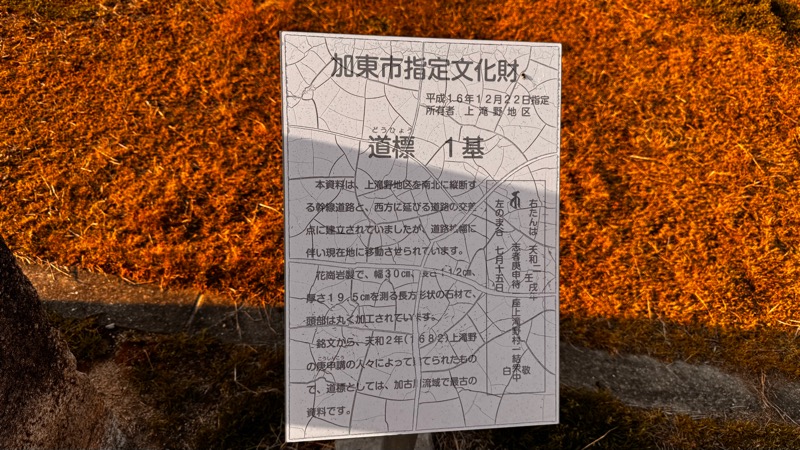 加東市指定文化財
平成16年12月22日指定
所有者 上滝野地区
どうひょう
道標 1基
本資料は、上滝野地区を南北に縦断す
る幹線道路と、西方に延びる道路の交差
点に建立されていましたが、道路拡幅に
伴い現在地に移動させられています。
花崗岩製で、幅30㎝、長さ112㎝、
厚さ19.5㎝を測る長方形状の石材で、
頭部は丸く加工されています。
銘文から、天和2年(1682)上滝野
こうしんこう
の庚申講の人々によって建てられたもの
で、道標としては、加古川流域で最古の
資料です。
右たんは 天和二 壬戌年
志者庚申待 座上滝野村一結衆中
左のま谷 七月十五日
敬
白